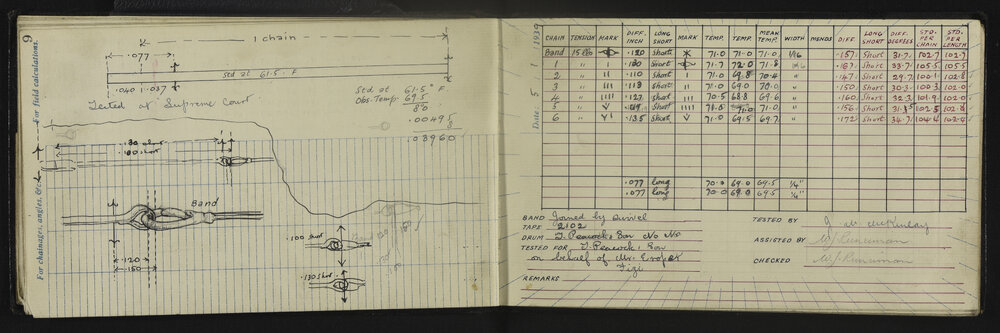 9
For field calculations.
For chainages, angles, &c.
1 chain
.077
Std at 61.5° F
.040 .037
Tested at Supreme Court
Std. at 61.5° F
Obs. Temp. 69.5
8.0
.00495
8
.03960
.130 short
Band
.120
.150
.100 short
.130 short
1939
Date: 5
CHAIN TENSION MARK DIFF. INCH LONG SHORT MARK TEMP. TEMP. MEAN TEMP. WIDTH MENDS DIFF. LONG SHORT DIFF. DEGREES STD. PER CHAIN STD. PER LENGTH
Band 15 lbs .120 Short 71.0 71.0 71.0 1/16 .157 Short 31.7 102.7 102.7
1 " .130 Short 71.7 72.0 71.8 .167 Short 33.7 105.5 105.5
2 " II .110 Short I 71.0 69.8 70.4 " .147 Short 29.7 100.1 102.8
3 " III .113 Short II 71.0 69.0 70.0 " .150 Short 30.3 100.3 102.0
4 " IIII .127 Short III 70.5 68.8 69.6 " .160 Short 32.3 101.9 102.0
5 " V .119 Short IIII 71.0 " .156 Short 102.5 102.8
6 " VI .135 Short V 71.0 69.5 69.7 " .172 Short 34.7 104.4 102.4
.077 long 70.0 69.0 69.5 1/4"
.077 long 70.0 69.0 69.5 1/4"
BAND Joined by swivel
TAPE 2102
DRUM T. Peacock & Son No No
TESTED FOR T. Peacock & Son
on behalf of Mr.
Fiji
REMARKS
TESTED BY
ASSISTED BY
CHECKED